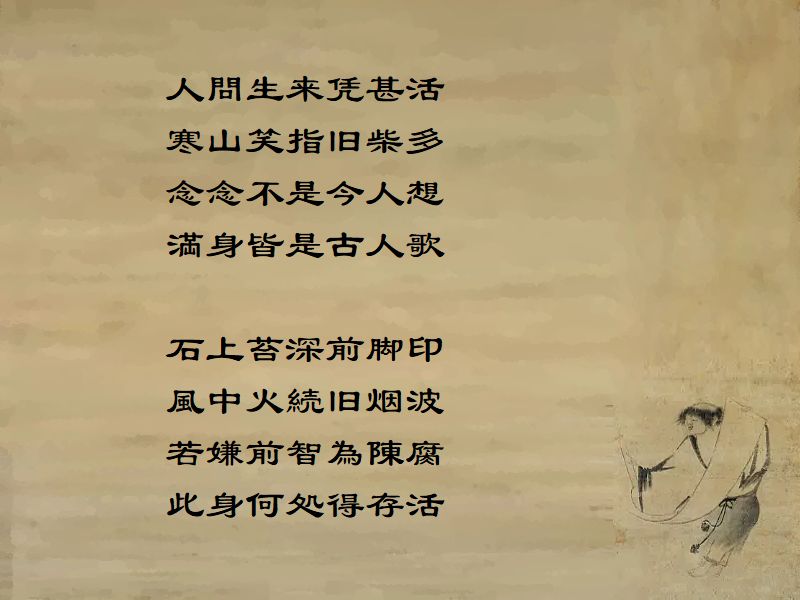 人問生来凭甚活
寒山笑指旧柴多
念念不是今人想
満身皆是古人歌
石上苔深前脚印
風中火続旧烟波
若嫌前智為陳腐
此身何処得存活